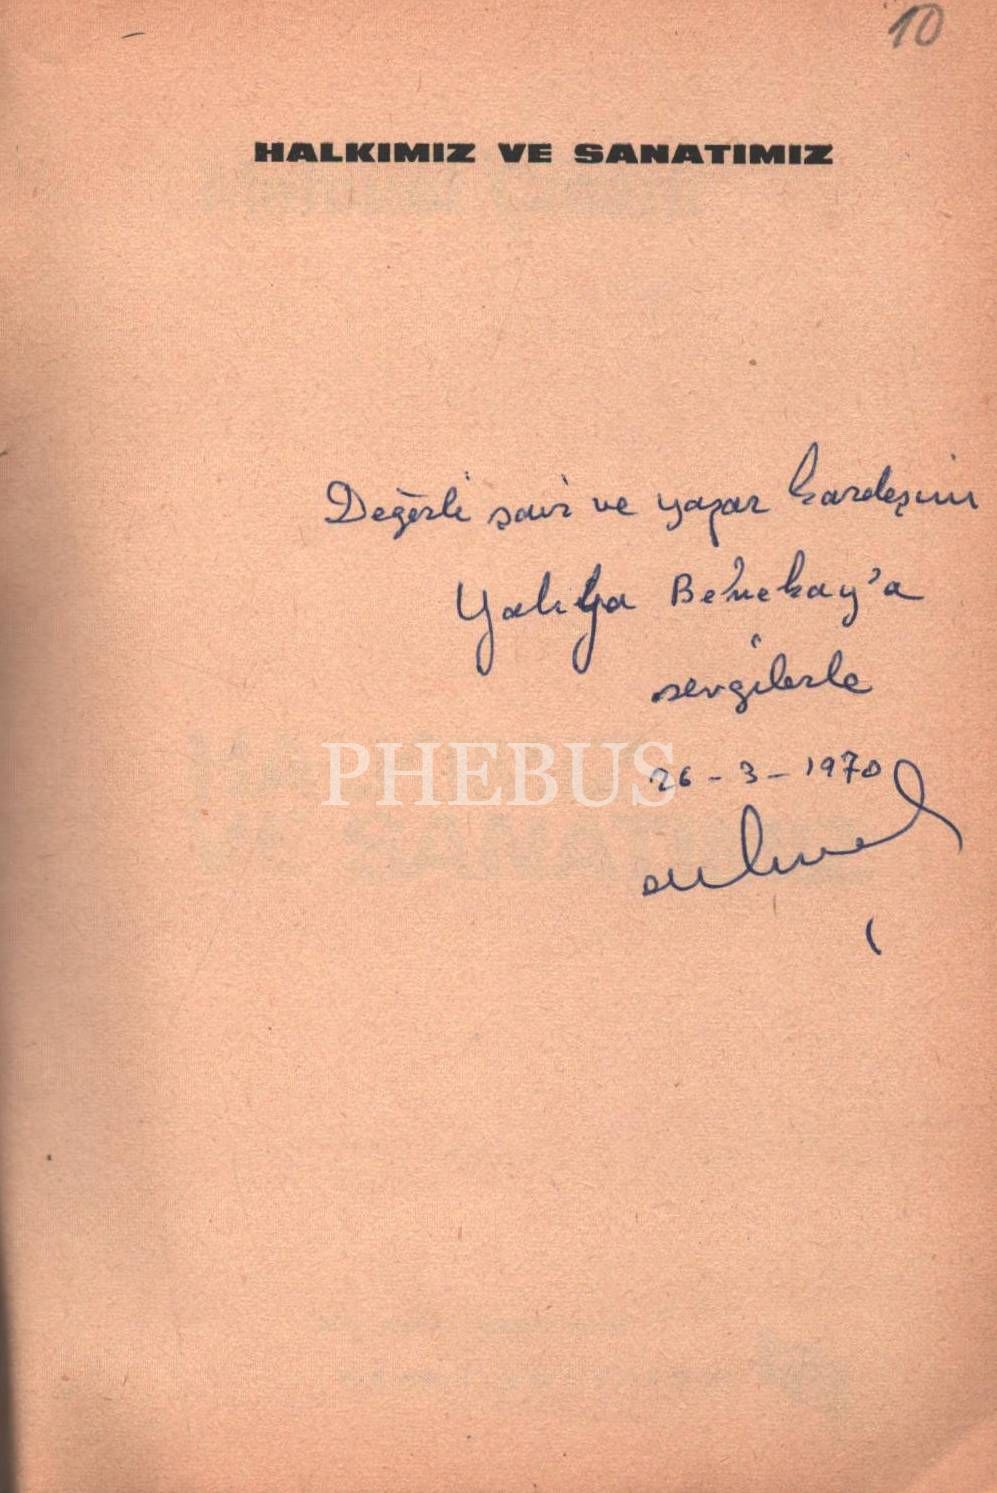 10
HALKIMIZ VE SANATIMIZ
Değerli şair ve yazar kardeşim
Yahya Benekay'a
sevgilerle
PHEBUS
26-3-1970